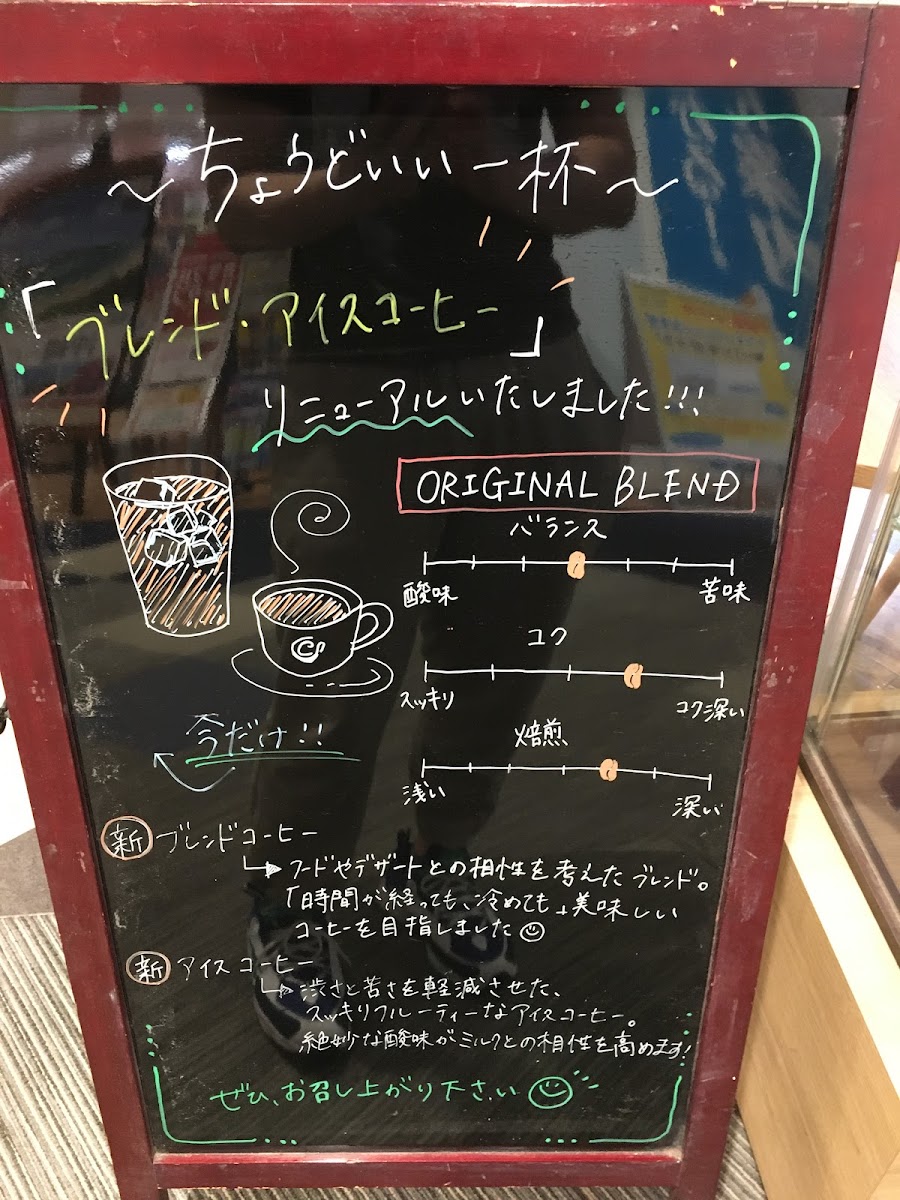 ～ちょうどいい一杯～
「ブレンド・アイスコーヒー」
リニューアルいたしました!!!
ORIGINAL BLEND
バランス
酸味 苦味
コク
スッキリ コク深い
焙煎
浅い 深い
今だけ!!
新 ブレンドコーヒー
フードやデザートとの相性を考えたブレンド。
「時間が経っても、冷めても」美味しい
コーヒーを目指しました
新 アイスコーヒー
渋さと苦さを軽減させた、
スッキリフルーティーなアイスコーヒー。
絶妙な酸味がミルクとの相性を高めます!
ぜひ、お召し上がり下さい